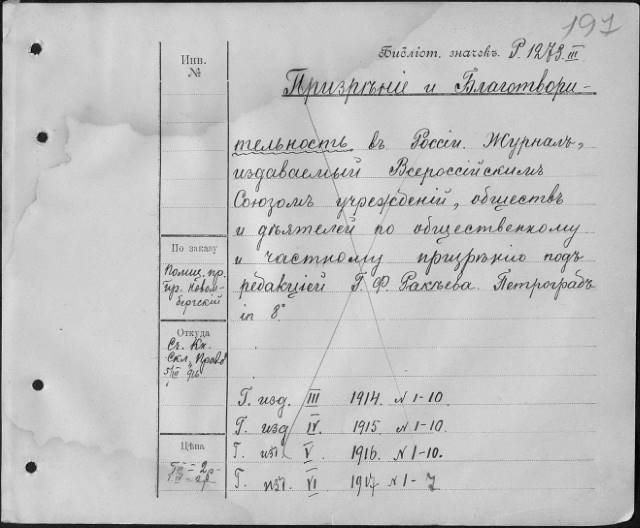 191
Библіот. значекъ. P. 1273. III
Инв.
№
Призрѣніе и Благотвори-
тельность въ Россіи. Журналъ,
издаваемый Всероссійскимъ
Союзомъ учрежденій, обществъ
и дѣятелей по общественному
и частному призрѣнію подъ
редакціей Г. Ф. Ракѣева. Петроградъ
in 8°
По заказу
Помощ. пр.
Новом-
бергскій
Откуда
Съ. Кн.
Скл. Право
916
Г. изд. III 1914. N 1-10.
Г. изд IV. 1915. N 1-10.
Г. изд V. 1916. N 1-10.
Г. изд. VI 1917 N 1-7
Цѣна
2р